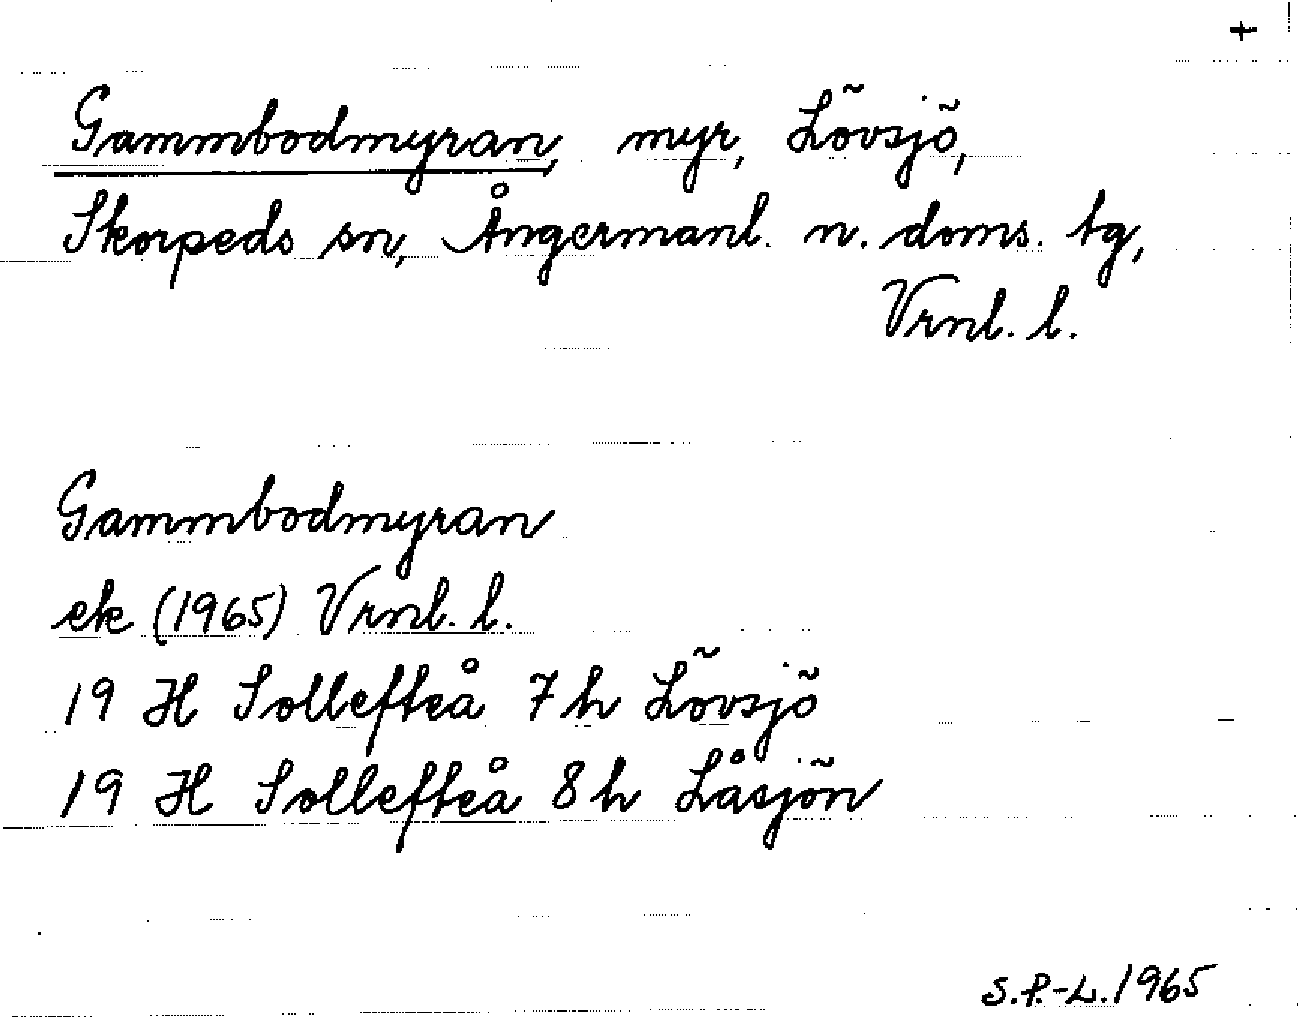 +
Gammbodmyran, myr, Lövsjö,
Skorpeds sn, Ångermanl. n. doms. tg,
Vrnl. l.
Gammbodmyran
ek (1965) Vrnl. l.
19 H Sollefteå 7 h Lövsjö
19 H Sollefteå 8 h Låsjön
S.P.-L. 1965